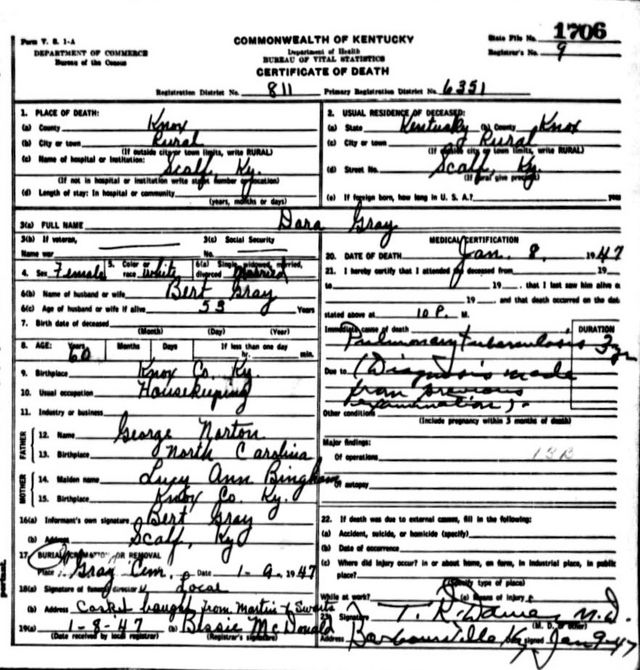 Form V. S. 1-A
DEPARTMENT OF COMMERCE
Bureau of the Census
COMMONWEALTH OF KENTUCKY
Department of Health
BUREAU OF VITAL STATISTICS
CERTIFICATE OF DEATH
State File No. 1706
Registrar's No. 9
Registration District No. 811 Primary Registration District No. 6351
1. PLACE OF DEATH:
(a) County Knox
(b) City or town Rural
(If outside city or town limits, write RURAL)
(c) Name of hospital or institution: Scalf, Ky.
(If not in hospital or institution write street number or location)
(d) Length of stay: In hospital or community
(years, months or days)
2. USUAL RESIDENCE OF DECEASED:
(a) State Kentucky (b) County Knox
(c) City or town Rural
(If outside city or town limits, write RURAL)
(d) Street No. Scalf, Ky.
(If rural give precinct)
(e) If foreign born, how long in U. S. A.? years
3(a) FULL NAME Dara Gray
3(b) If veteran,
Name war
3(c) Social Security
No.
4. Sex Female 5. Color or race white 6(a) Single, widowed, married, divorced Married
6(b) Name of husband or wife Bert Gray
6(c) Age of husband or wife if alive 53 Years
7. Birth date of deceased
(Month) (Day) (Year)
8. AGE: Years 60 Months Days If less than one day hr. min.
9. Birthplace Knox Co. Ky.
10. Usual occupation Housekeeping
11. Industry or business
FATHER
12. Name George Norton
13. Birthplace North Carolina
MOTHER
14. Maiden name Lucy Ann Bingham
15. Birthplace Knox Co. Ky.
16(a) Informant's own signature Bert Gray
(b) Address Scalf, Ky
17. BURIAL, CREMATION, OR REMOVAL
Place Gray Cem. Date 1-9 1947
18(a) Signature of funeral director Local
(b) Address Casket bought from Martin &
19(a) 1-8-'47 (b) Blssie McDonald
(Date received by local registrar) (Registrar's signature)
MEDICAL CERTIFICATION
20. DATE OF DEATH Jan. 8, 1947
21. I hereby certify that I attended deceased from 19
to 19 , that I last saw him alive
19 , and that death occurred on the date
stated above at 10 P. M.
Immediate cause of death
Pulmonary tuberculosis
DURATION
3 yr
Due to (Diagnosis made
from previous
examination).
Other conditions
(Include pregnancy within 3 months of death)
Major findings:
Of operations 13B
Of autopsy
22. If death was due to external causes, fill in the following:
(a) Accident, suicide, or homicide (specify)
(b) Date of occurrence
(c) Where did injury occur? in or about home, on farm, in industrial place, in public
place?
(Specify type of place)
While at work? (e) Means of injury
23. Signature T. R. Davies, M.D.
(M. D. or other)
Address Barbourville Ky signed Jan 9-47